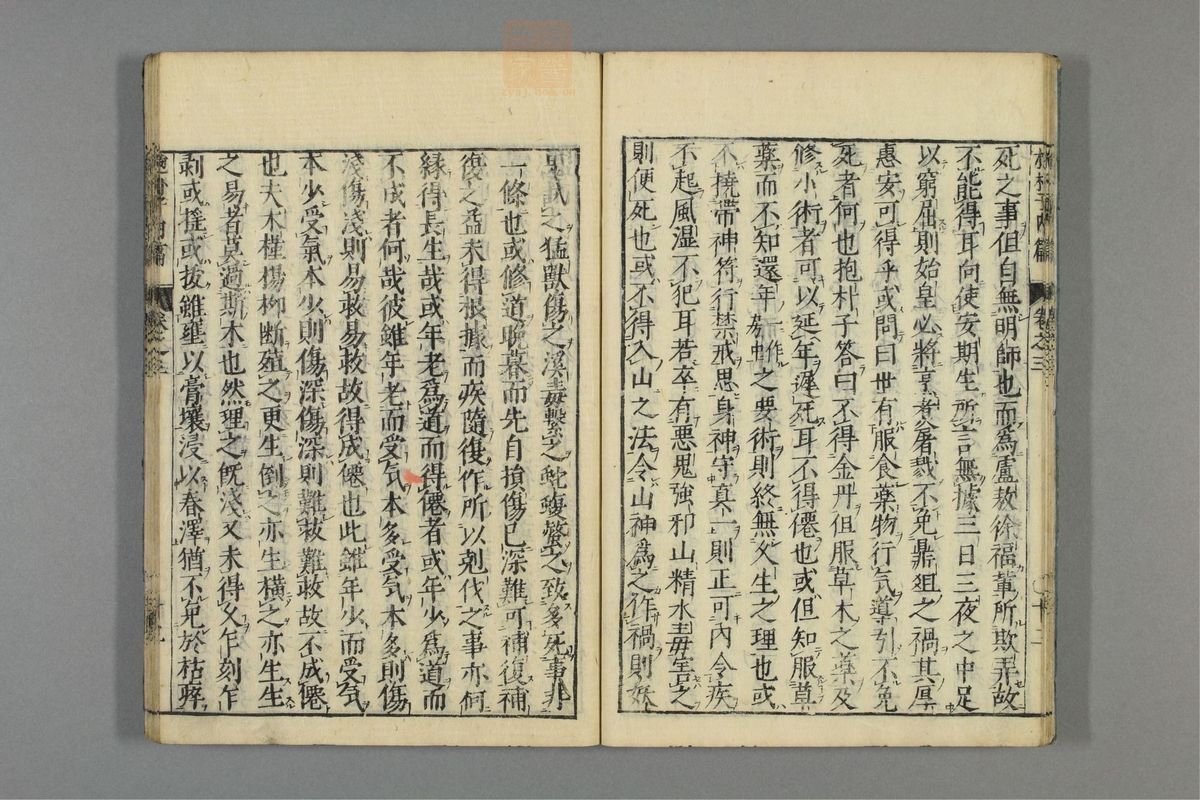 死之事但自無明師也而爲盧敖徐福輩所欺弄故
不能得耳向使安期生所言無據三日三夜之中足
以窮屈則始皇必將烹煑屠戮不免鼎俎之禍其厚
惠安可得乎或問曰世有服食藥物行气導引不免
死者何也抱朴子答曰不得金丹但服草木之藥及
修小術者可以延年遲死耳不得僊也或但知服草
藥而不知還年之要術則終無久生之理也或
不撓帶神符行禁戒思身神守真一則正可內令疾
不起風濕不犯耳若卒有惡鬼強邪山精水毒害之
則便死也或不得入山之法令山神爲之作禍則妖
鬼試之猛獸傷之溪毒繫之蛇蝮螫之致多死事非
一條也或修道晚暮而先自損傷已深難可補復補
復之益未得根據而疾隨復作所以剋伐之事亦何
縁得長生哉或年老爲道而得僊者或年少爲道而
不成者何哉彼雖年老而受气本多受气本多則傷
淺傷淺則易救易救故得成僊也此雖年少而受气
本少受氣本少則傷深傷深則難救難救故不成僊
也夫木槿楊柳断殖之更生倒之亦生橫之亦生生
之易者莫過斯木也然埋之旣淺又未得久乍刻乍
剥或搖或拔雖壅以膏壤浸以春澤猶不免於枯瘁